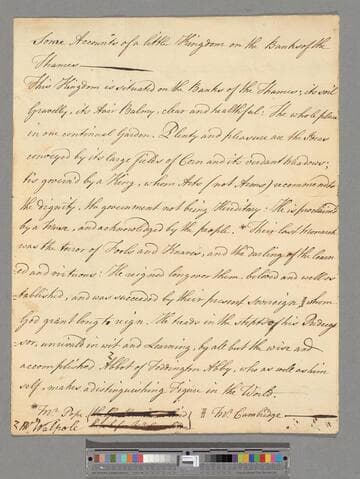 Some Accounts of a little Kingdom on the Banks of the
Thames
This Kingdom is situated on the Banks of the Thames; its soil
Gravelly, its Air Balmy, clear and healthful: The whole place
in one continual Garden. Plenty and pleasure are the Ideas
convey'd by its large fields of Corn and its verdant Meadows:
tis govern'd by a King, whom Arts (not Arms) recommends to
the dignity, the government not being Hereditary: He is proclaim'd
by a Muse, and acknowledged by the people. * Their last Monarch
was the teror of Fools and Knaves, and the darling of the learn
ed and virtuous: He reigned long over them beloved and well es
tablished, and was succeeded by their present Sovereign ‖ whom
God grant long to reign. He treads in the steps of his Predeces
sor, unrivall'd in wit and Learning, by all but the wise and
accomplished 2 Abbot of Teddington Abby, who as well as him
self, makes a distinguishing Figure in the World.
* Mr. Pope ‖ Mr. Cambridge
2 Mr. Walpole